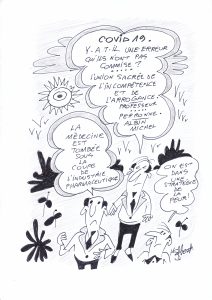 COVID 19.
Y-A-T-IL UNE ERREUR
QU'ILS N'ONT PAS
COMMISE ?
.....
L'UNION SACRÉE DE
L'INCOMPÉTENCE
ET DE
L'ARROGANCE.
PROFESSEUR
PERRONNE.
ALBIN
MICHEL
LA
MÉDECINE
EST
TOMBÉE
SOUS
LA
COUPE
DE L'INDUSTRIE
PHARMACEUTIQUE
ON EST
DANS
UNE
STRATÉGIE
DE LA
PEUR!